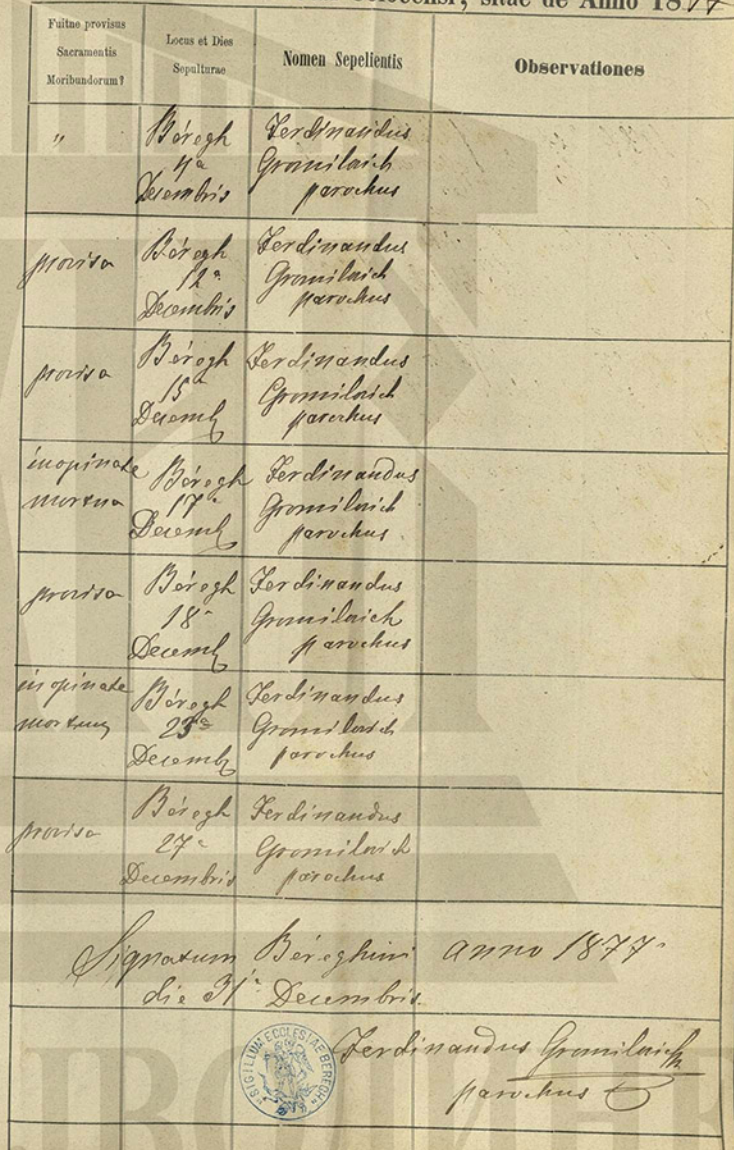 sitae de Anno 1877
Fuitne provisus
Sacramentis
Moribundorum?
Locus et Dies
Sepulturae
Nomen Sepelientis
Observationes
"
Béregh
Decembris
Ferdinandus
Gromilovich
parochus
provisa
Béregh
12a
Decembris
Ferdinandus
Gromilovich
parochus
provisa
Béregh
15a
Decemb
Ferdinandus
Gromilovich
parochus
inopinate
mortua
Béregh
17a
Decemb
Ferdinandus
Gromilovich
parochus
provisa
Béregh
18a
Decemb
Ferdinandus
Gromilovich
parochus
inopinate
Béregh
Decemb
Ferdinandus
Gromilovich
parochus
provisa
Béregh
27a
Decembris
Ferdinandus
Gromilovich
parochus
Signatum Béreghini anno 1877
die 31a Decembris
SIGILLUM ECCLESIAE BEREGH
Ferdinandus Gromilovich
parochus